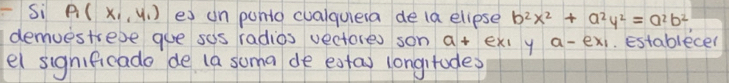 - Si P₁(x₁, y₁) es un punto cualquiera de la elipse b²x² + a²y² = a²b²,
demuéstrese que sus radios vectores son a + ex₁ y a - ex₁. Establecer
el significado de la suma de estas longitudes